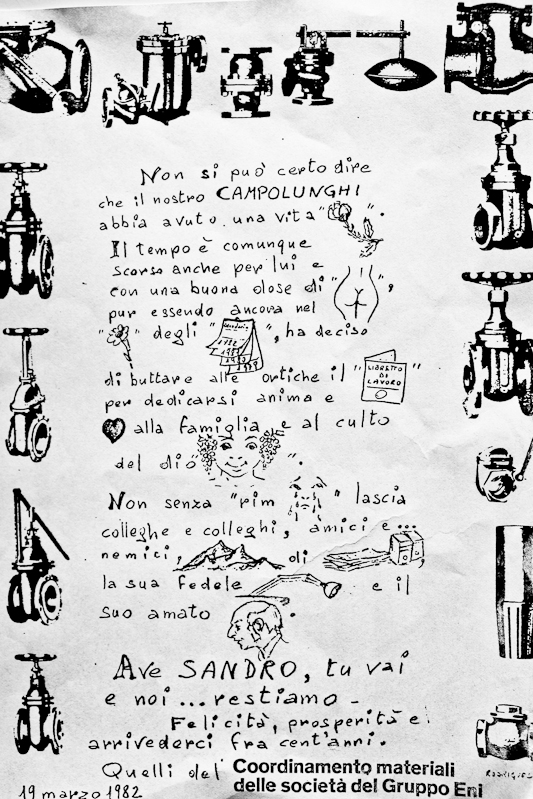 Non si può certo dire
che il nostro CAMPOLUNGHI
abbia avuto una vita " ".
Il tempo è comunque
scorso anche per lui e
con una buona dose di " ",
pur essendo ancora nel
" " degli " ", ha deciso
di buttare alle ortiche il "LIBRETTO DI LAVORO"
per dedicarsi anima e
alla famiglia e al culto
del dio " ".
Non senza "rim " lascia
colleghe e colleghi, amici e...
nemici, di
la sua fedele e il
suo amato .
Ave SANDRO, tu vai
e noi ... restiamo -
Felicità, prosperità e
arrivederci fra cent'anni.
Quelli del Coordinamento materiali
delle società del Gruppo Eni
19 marzo 1982